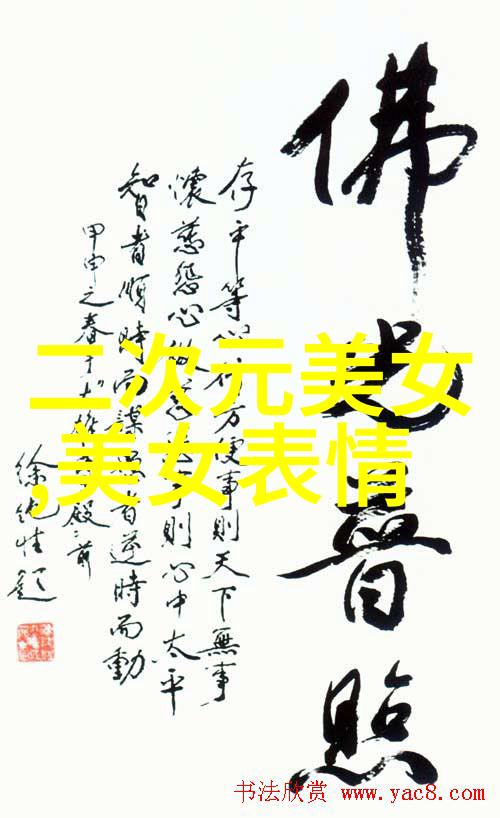 佛光普照
存平等心行方便事則天下無事
懷慈悲心做慈善事則心中太平
智者順時而謀愚者逆時而動
甲申之春于大雄寶殿之前
徐純性題
二次元美女
,美女表情
书法欣赏 www.yac8.com